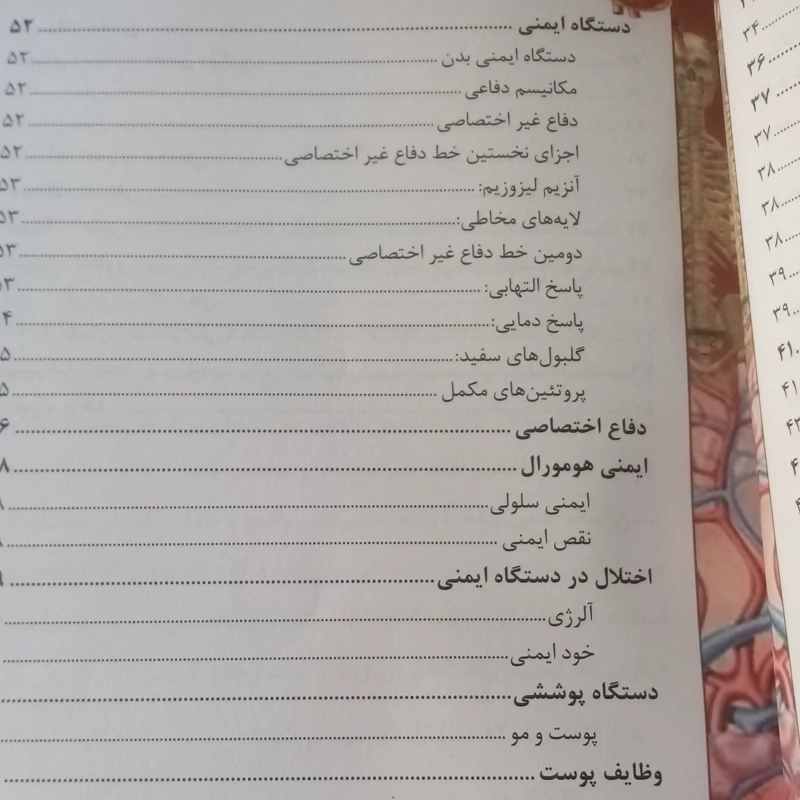 دستگاه ایمنی ........ ۵۲
دستگاه ایمنی بدن ........ ۵۲
مکانیسم دفاعی ........ ۵۲
دفاع غیر اختصاصی ........ ۵۲
اجزای نخستین خط دفاع غیر اختصاصی ........ ۵۲
آنزیم لیزوزیم: ........ ۵۳
لایه‌های مخاطی: ........ ۵۳
دومین خط دفاع غیر اختصاصی ........ ۵۳
پاسخ التهابی: ........ ۳
پاسخ دمایی: ........ ۴
گلبول‌های سفید: ........ ۵
پروتئین‌های مکمل ........ ۵
دفاع اختصاصی ........ ۶
ایمنی هومورال ........ ۸
ایمنی سلولی ........
نقص ایمنی ........
اختلال در دستگاه ایمنی ........
آلرژی ........
خود ایمنی ........
دستگاه پوششی ........
پوست و مو ........
وظایف پوست ........
۳۴
۳۶
۳۷
۳۷
۳۸
۳۸
۳۸
۳۹
۳۹
۴۱
۴۱